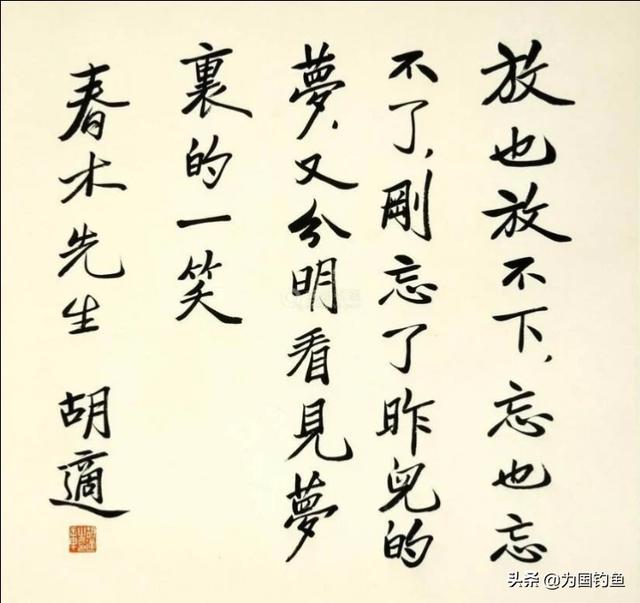 放也放不下,忘也忘
不了,剛忘了昨兒的
夢,又分明看見夢
裏的一笑
春木先生 胡適
头条 @为国钓鱼